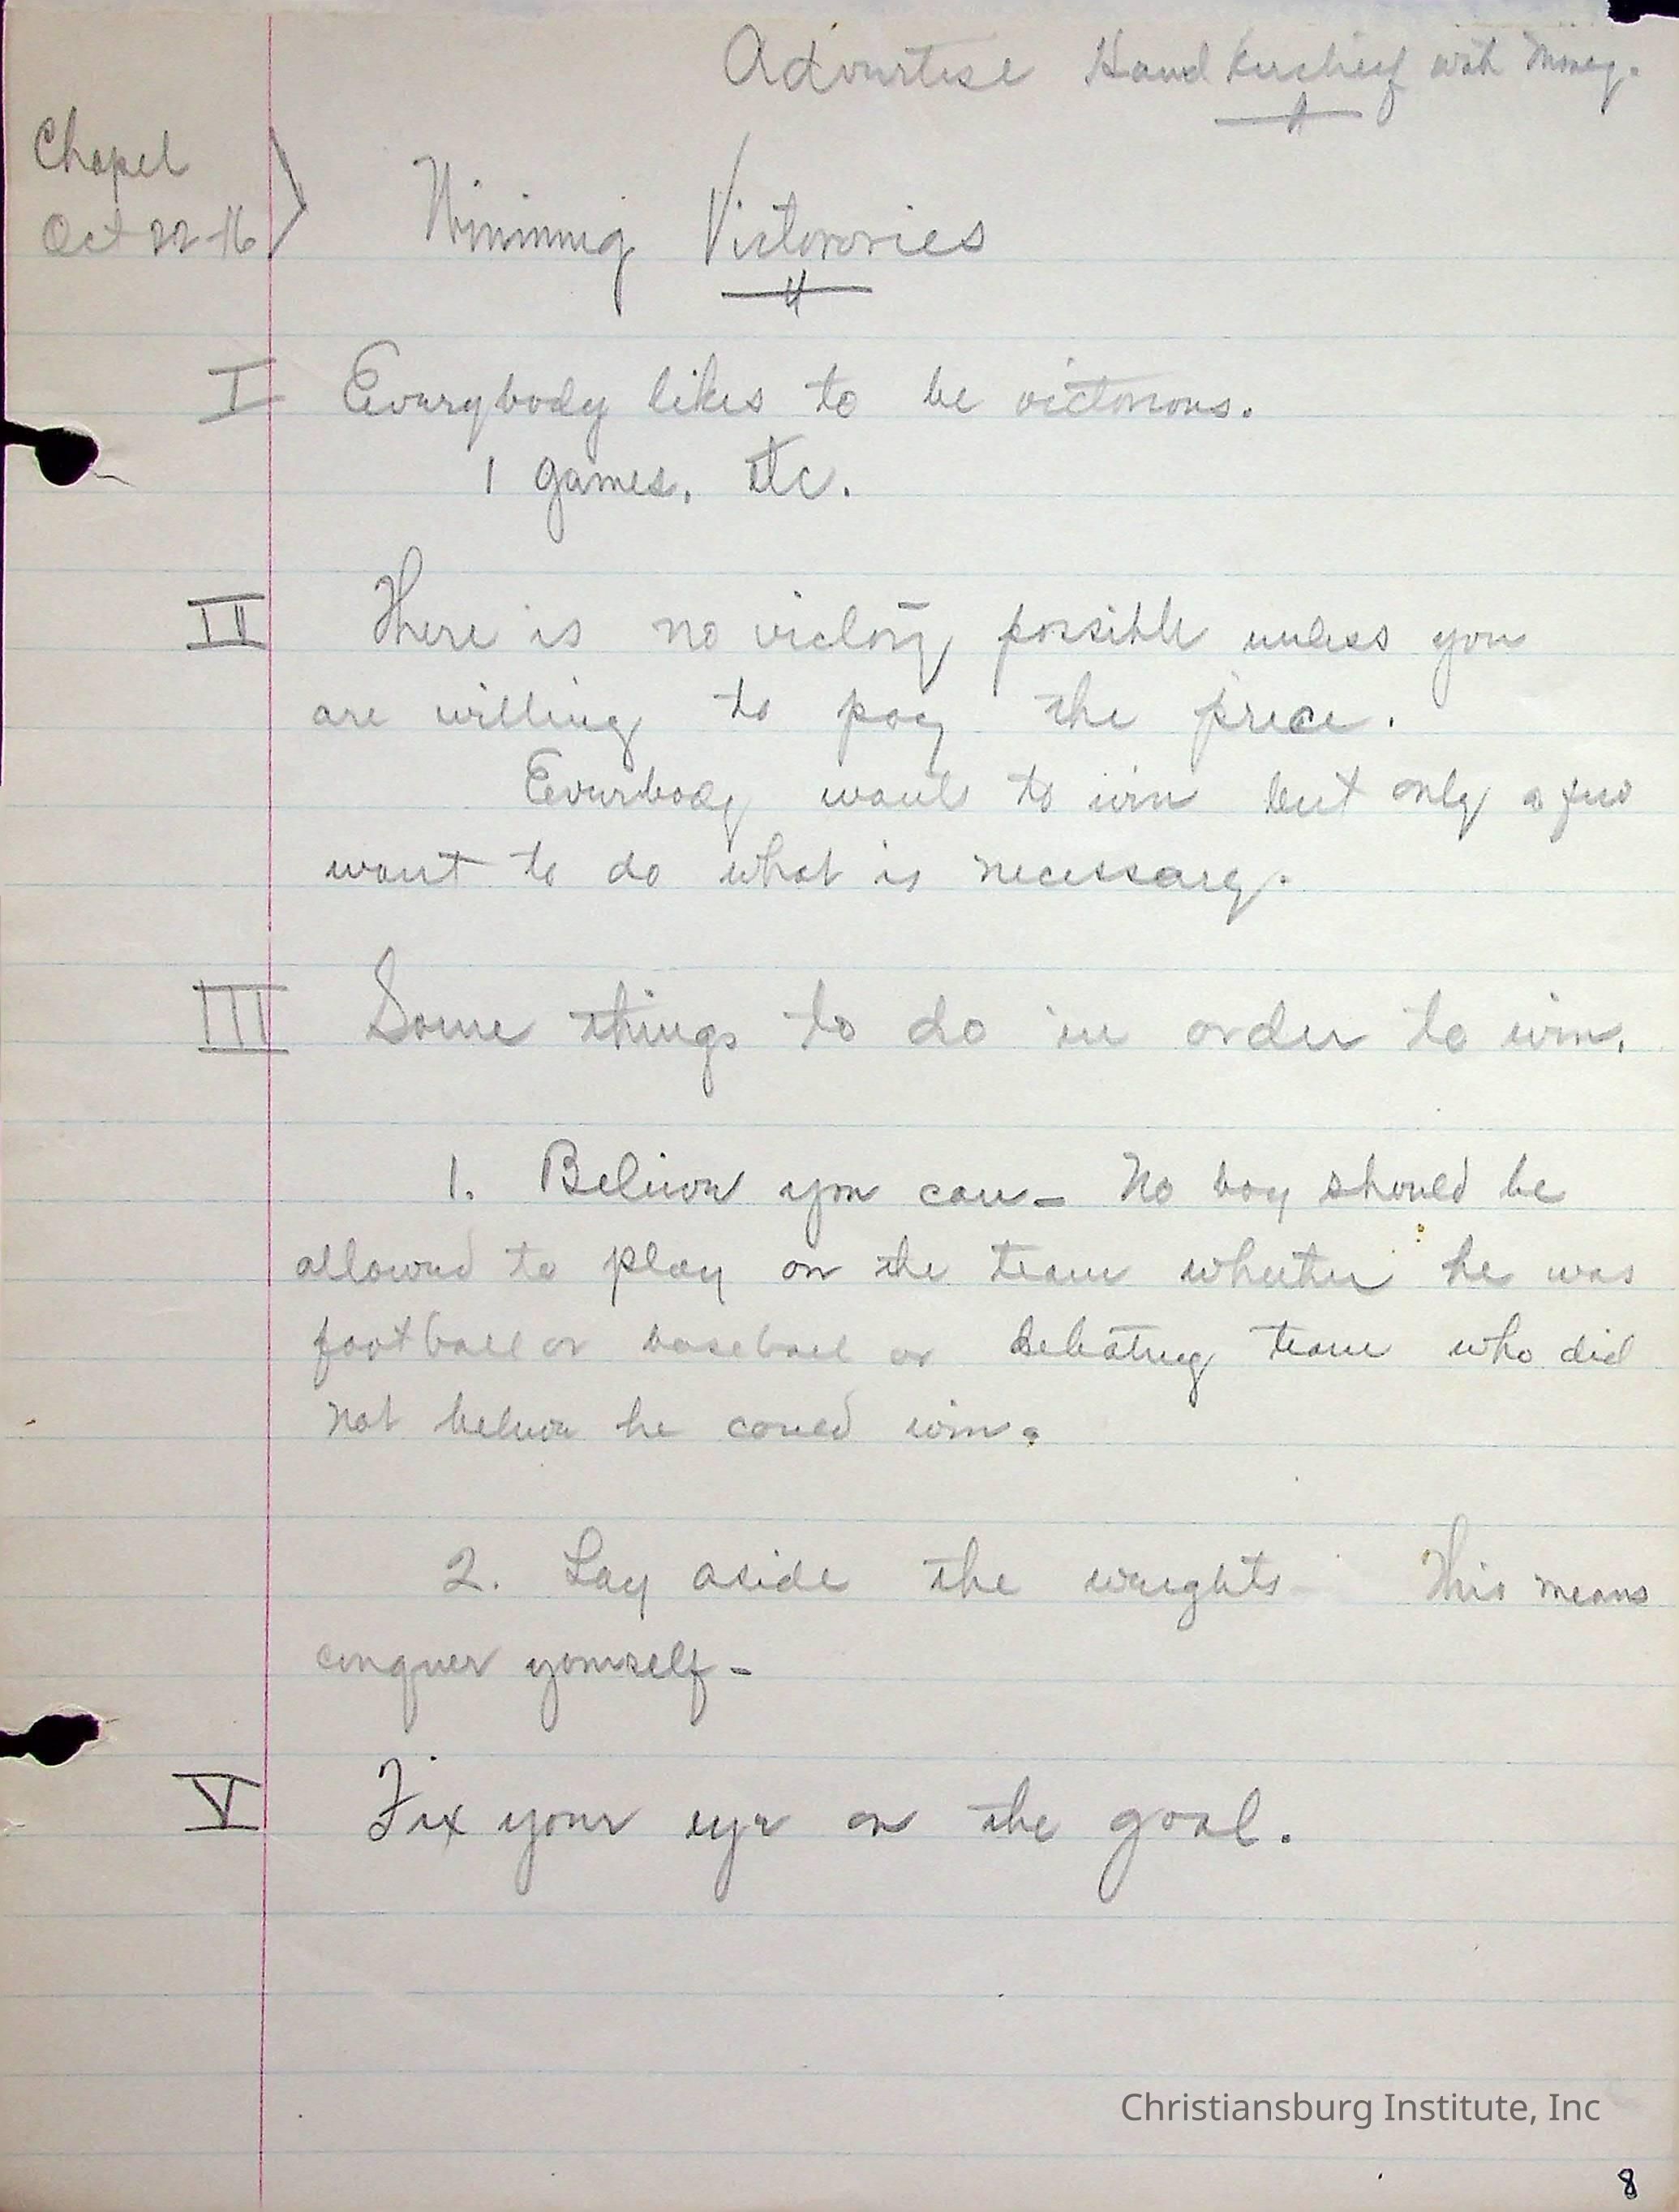 Advertise Hand Kerchief with money.
Chapel
Oct 22-16
Winning Victorories
I Everybody likes to be victorious.
1 games, etc.
II There is no victory possible unless you
are willing to pay the price.
Everbody wants to win but only a few
want to do what is necessary.
III Some things to do in order to win.
1. Believe you can - No boy should be
allowed to play on the team whether he was
football or baseball or debating team who did
not believe he could win.
2. Lay aside the weights - This means
conquer yourself -
V Fix your eye on the goal.
Christiansburg Institute, Inc
8